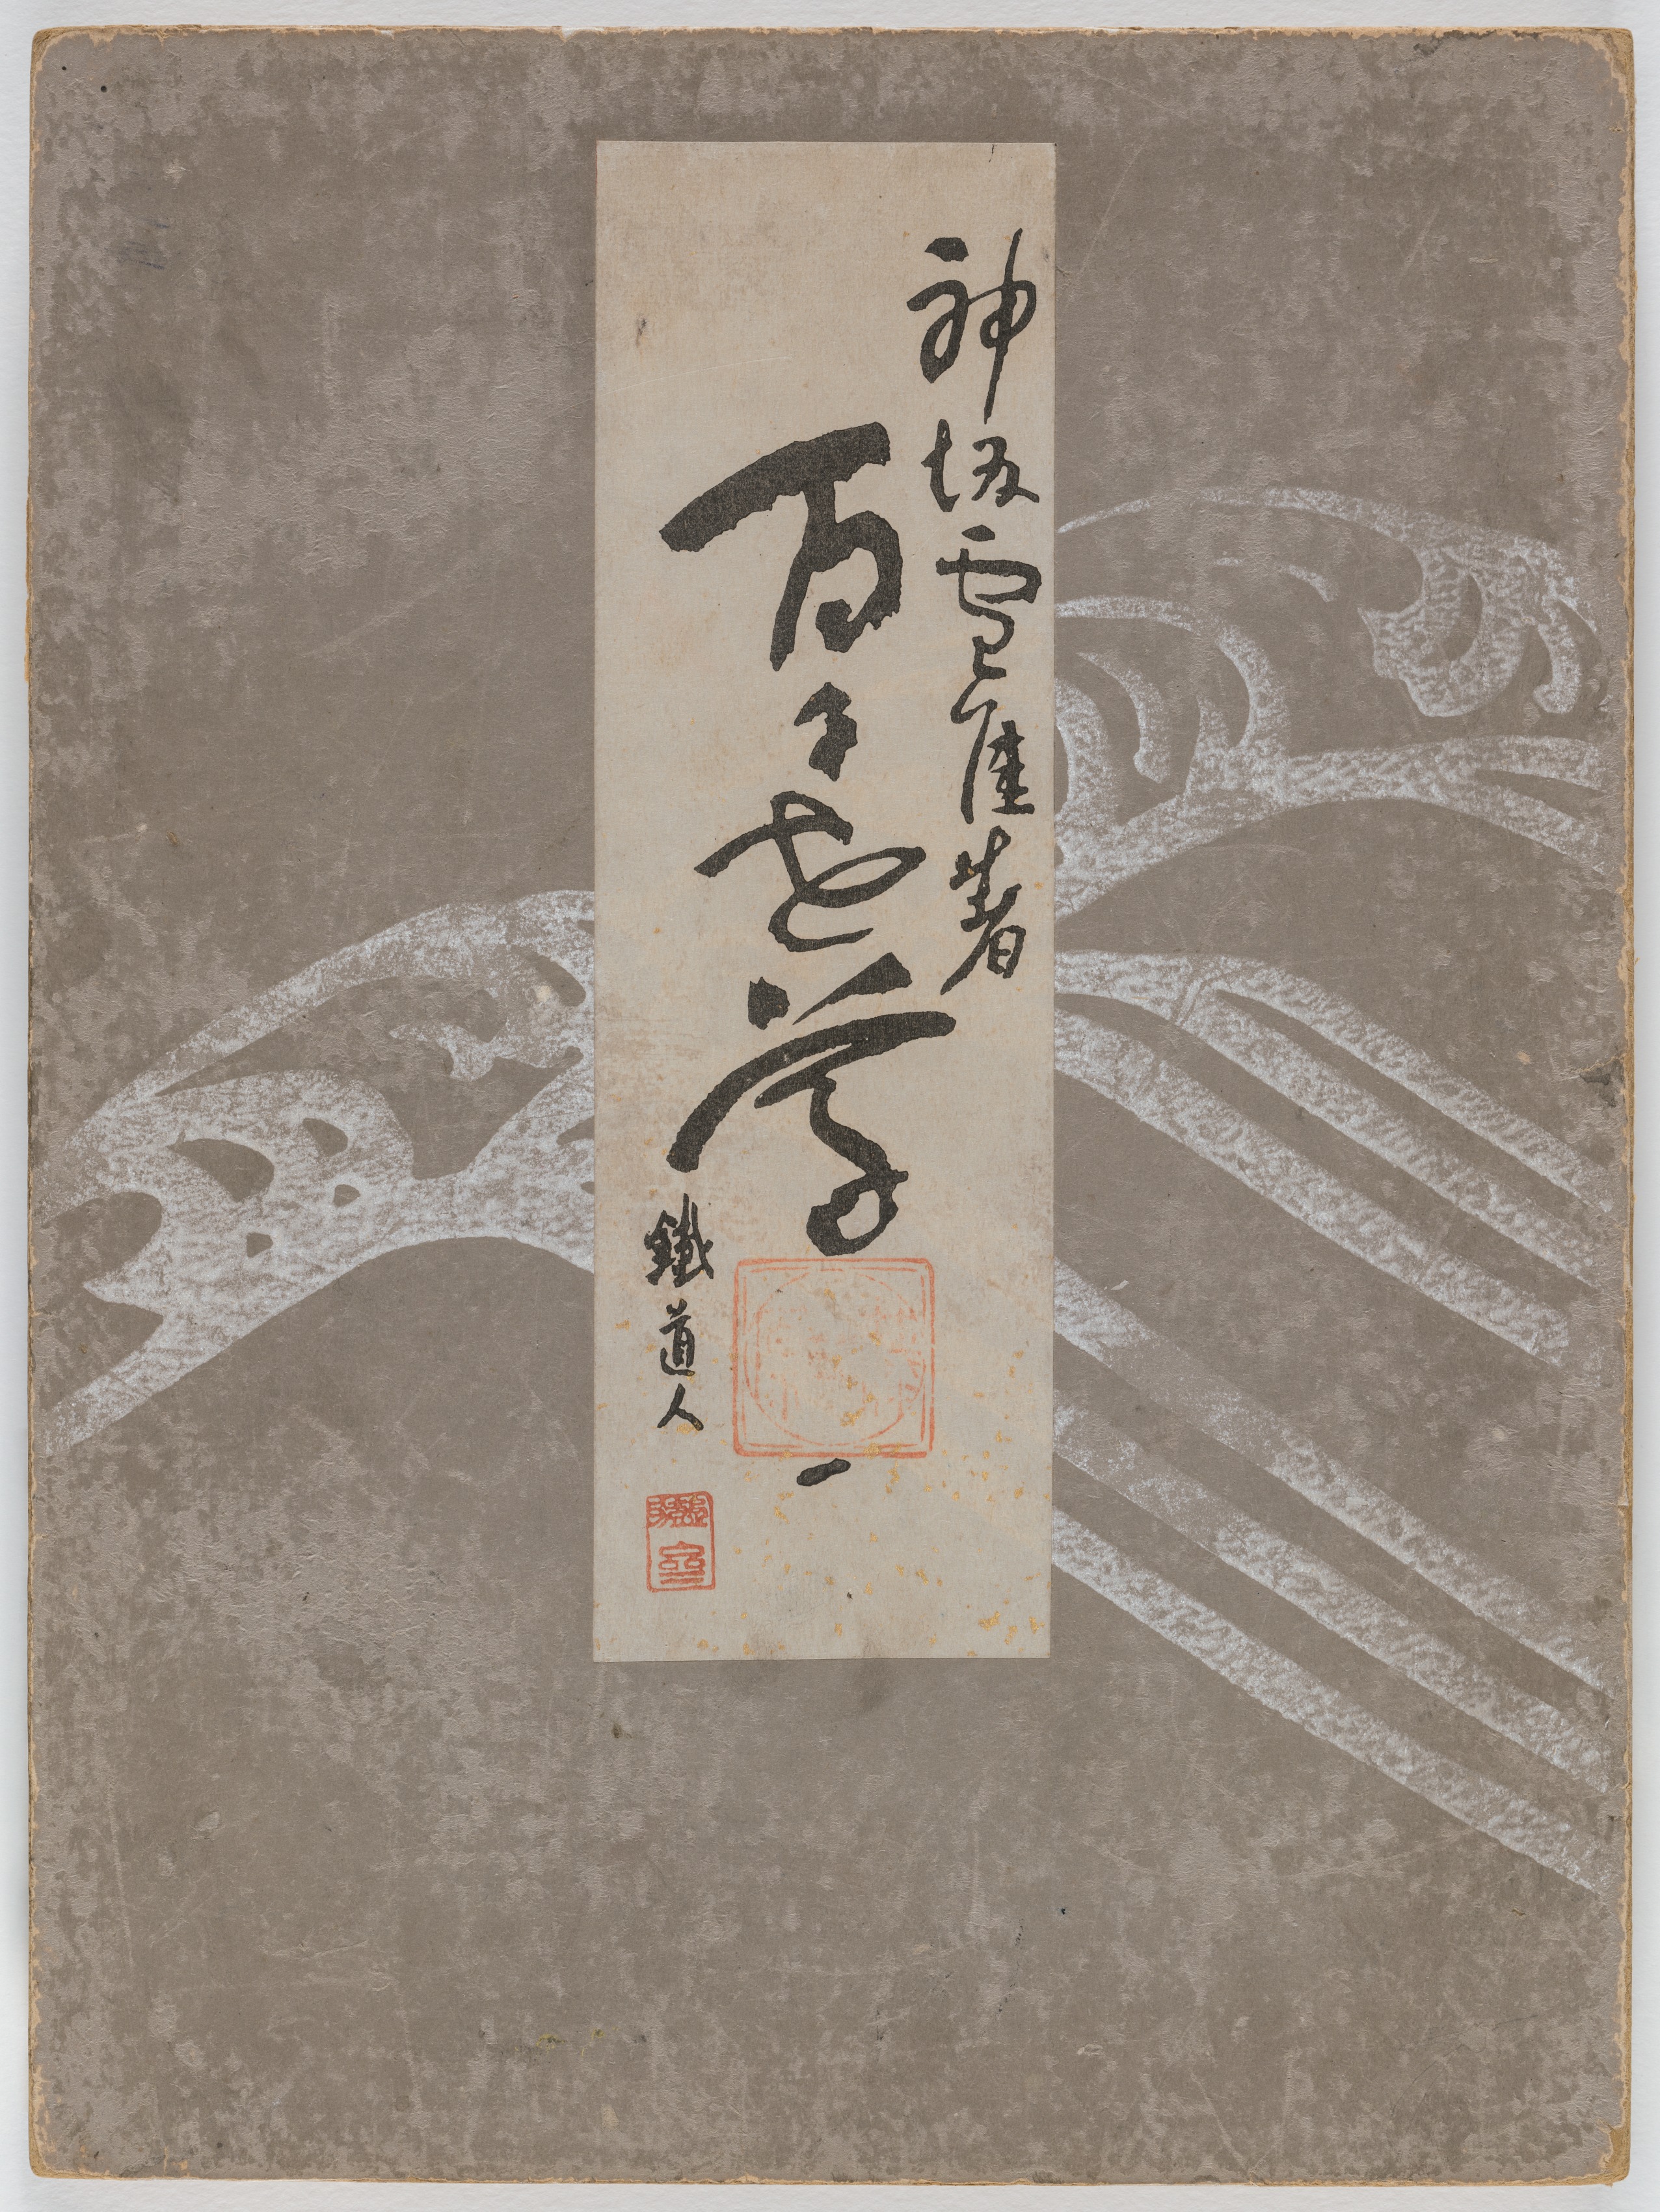 神坂雪佳著
百々世草 一
鐵道人